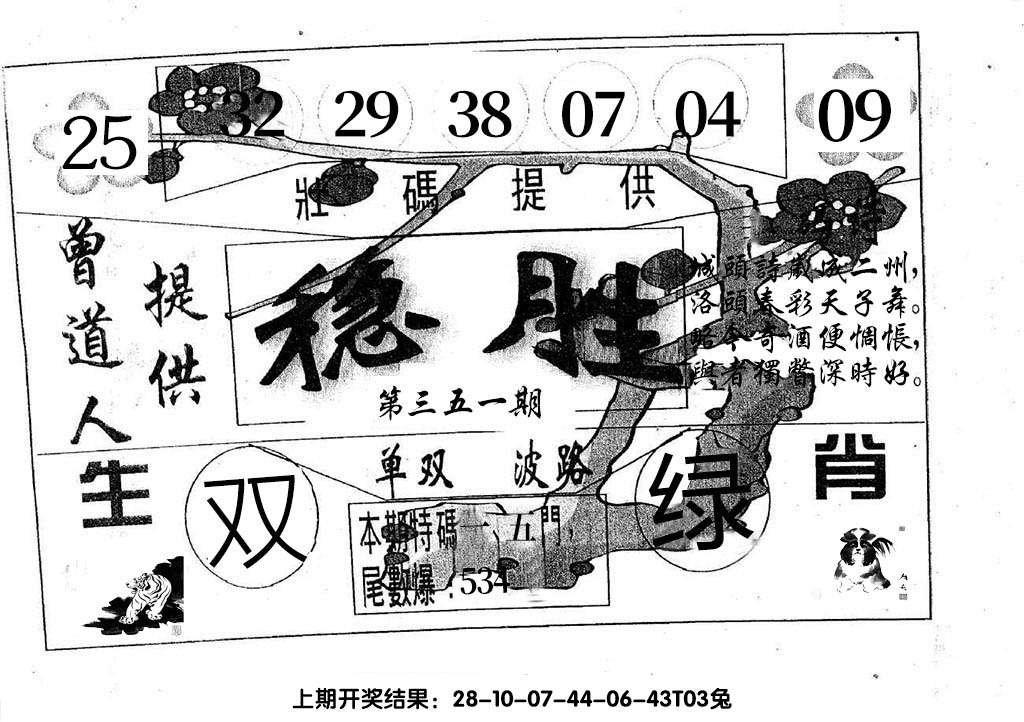 25 32 29 38 07 04 09
壯碼提供
特
曾道人
提供
稳胜
第三五一期
城頭詩藏成二州，
洛頭春彩天子舞。
略今奇酒便惆悵，
與者獨瞥深時好。
单双 波路
生肖
双
绿
本期特碼一、五門，
尾數爆：534
上期开奖结果：28-10-07-44-06-43T03兔